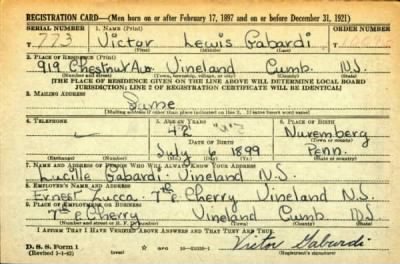 REGISTRATION CARD—(Men born on or after February 17, 1897 and on or before December 31, 1921)
SERIAL NUMBER 1. NAME (Print) ORDER NUMBER
T 773 Victor Lewis Gabardi
(First) (Middle) (Last)
2. PLACE OF RESIDENCE (Print)
919 Chestnut Ave. Vineland Cumb. N.J.
(Number and street) (Town, township, village, or city) (County) (State)
[THE PLACE OF RESIDENCE GIVEN ON THE LINE ABOVE WILL DETERMINE LOCAL BOARD
JURISDICTION; LINE 2 OF REGISTRATION CERTIFICATE WILL BE IDENTICAL]
3. MAILING ADDRESS
Same
[Mailing address if other than place indicated on line 2. If same insert word same]
4. TELEPHONE 5. AGE IN YEARS 6. PLACE OF BIRTH
42 Nuremberg
DATE OF BIRTH (Town or county)
July 6 1899 Penn.
(Exchange) (Number) (Mo.) (Day) (Yr.) (State or country)
7. NAME AND ADDRESS OF PERSON WHO WILL ALWAYS KNOW YOUR ADDRESS
Lucille Gabardi Vineland N.J.
8. EMPLOYER'S NAME AND ADDRESS
Ernest Lucca 7th & Cherry Vineland N.J.
9. PLACE OF EMPLOYMENT OR BUSINESS
7th & Cherry Vineland Cumb N.J.
(Number and street or R. F. D. number) (Town) (County) (State)
I AFFIRM THAT I HAVE VERIFIED ABOVE ANSWERS AND THAT THEY ARE TRUE.
D. S. S. Form 1
(Revised 1-1-42) GPO Victor Gabardi
(Registrant's signature)